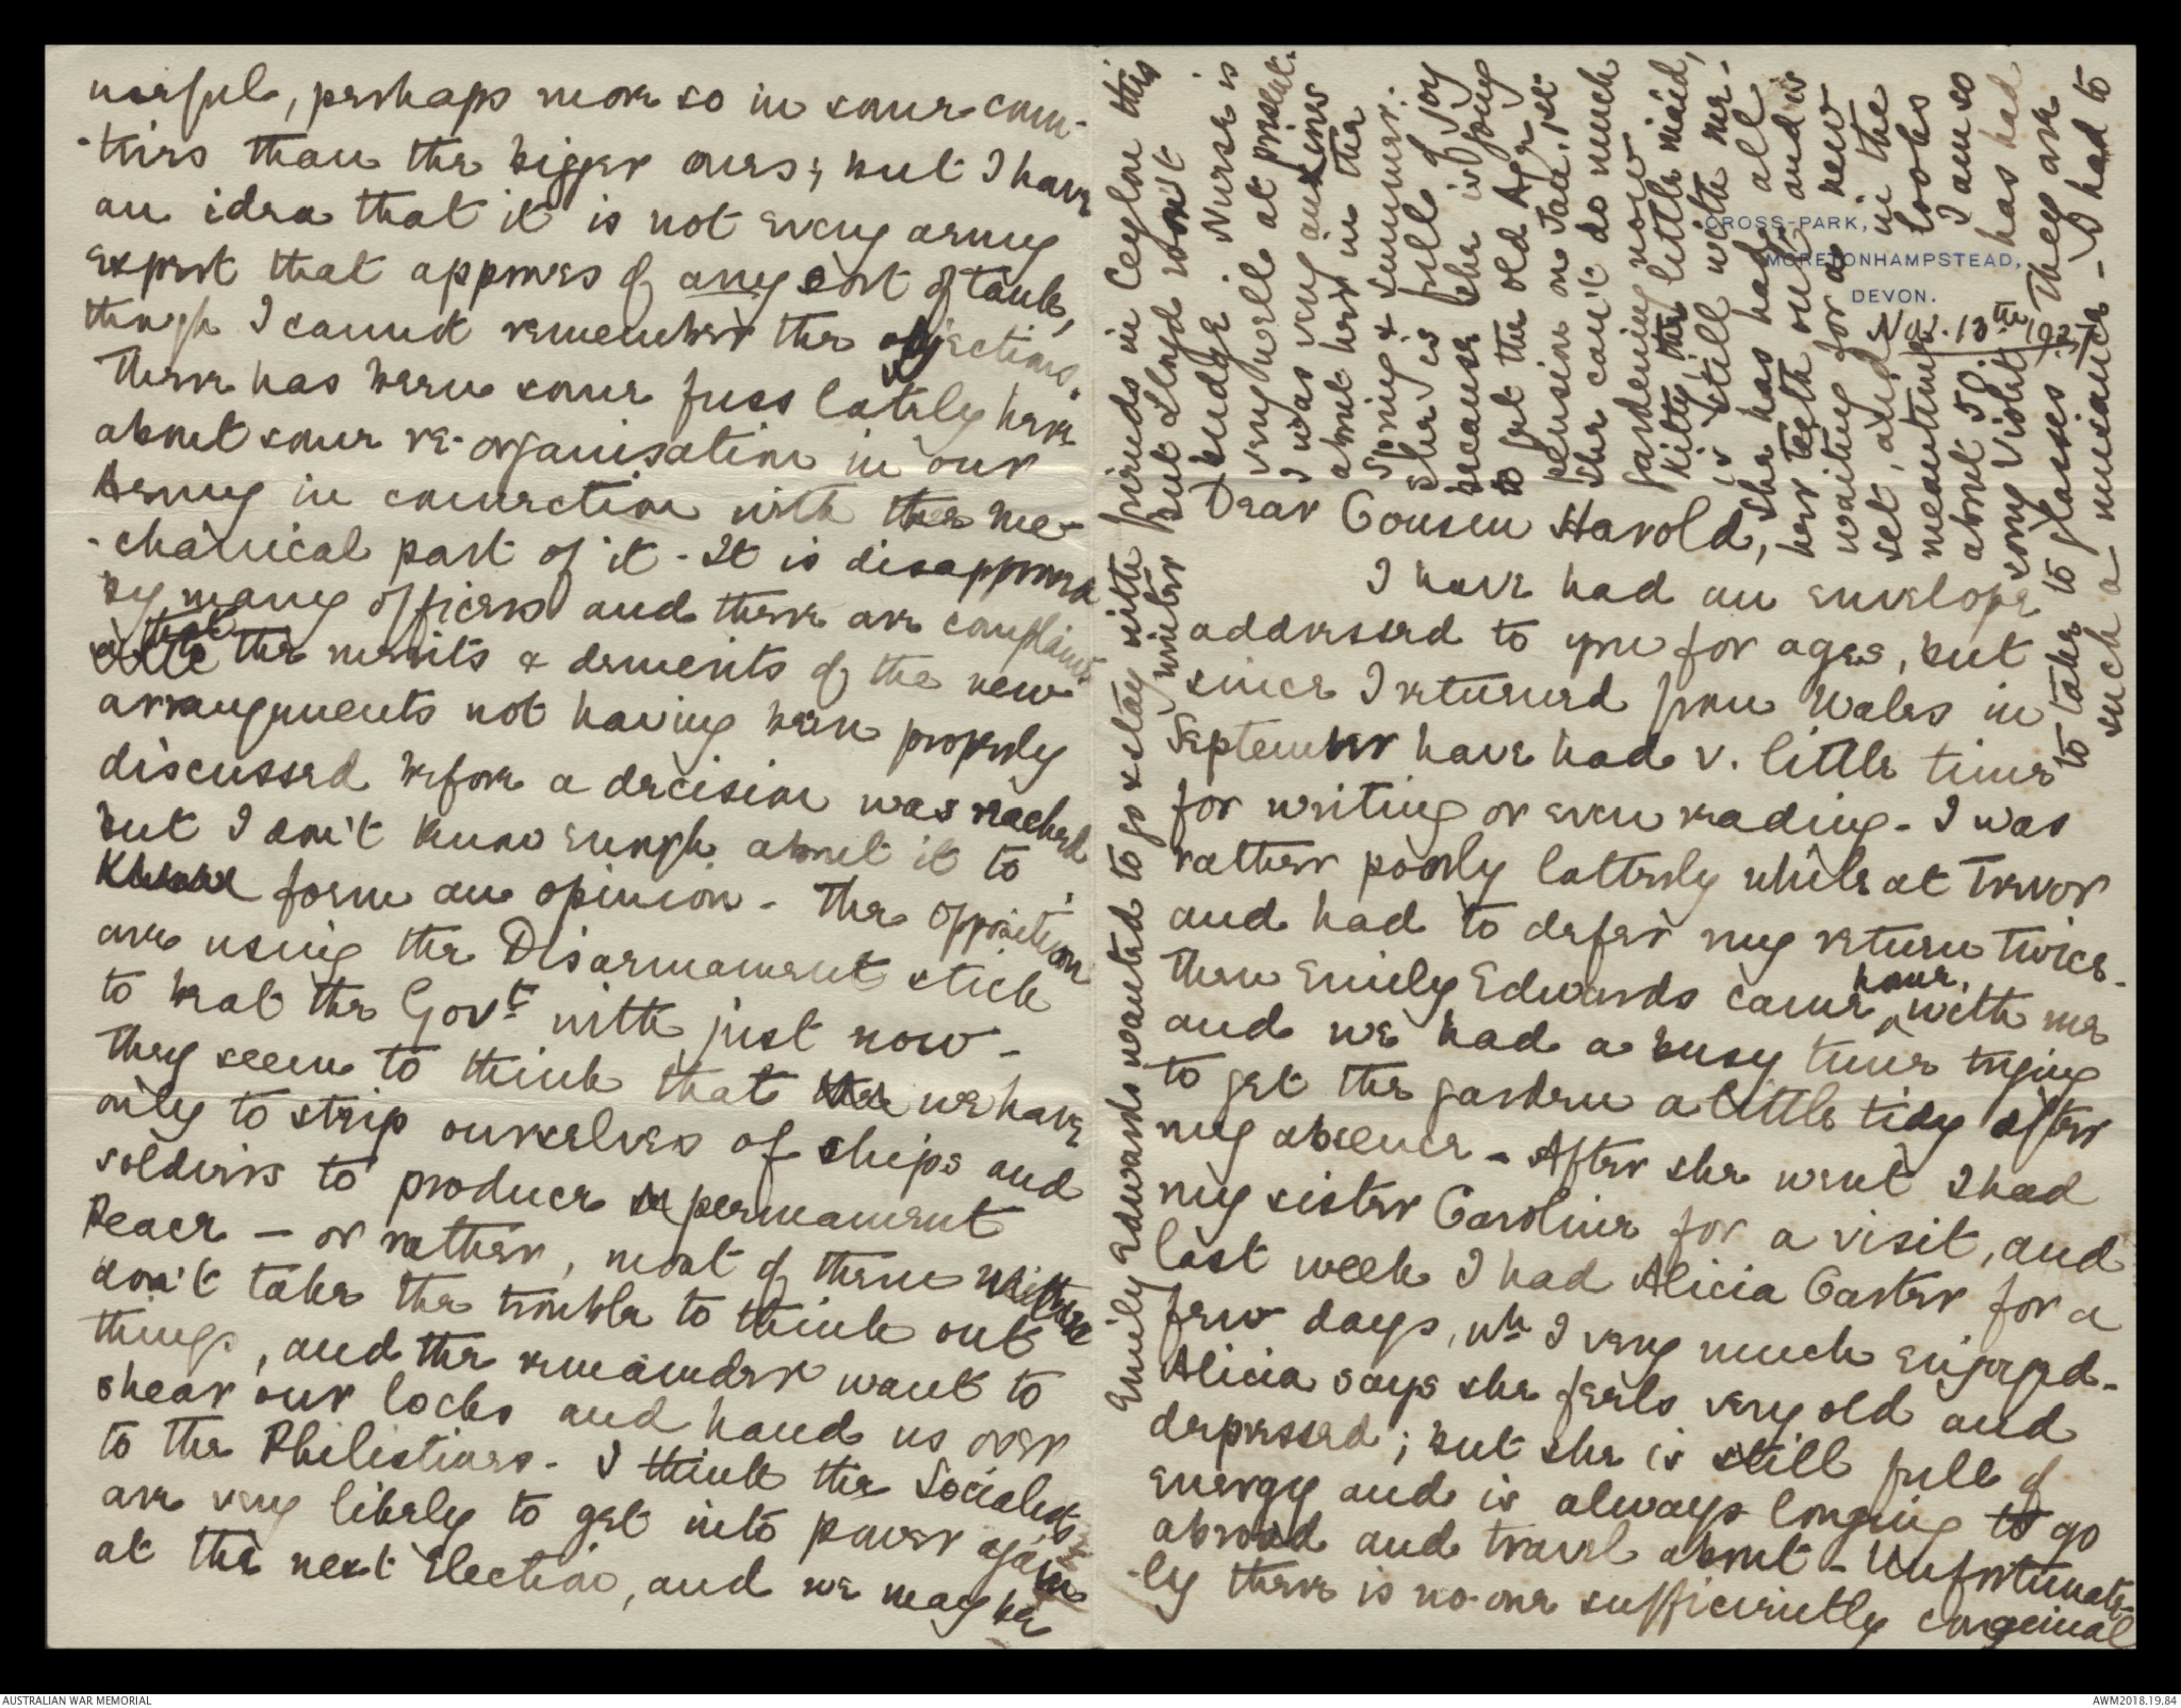 useful, perhaps more so in some coun-
-tries than the bigger ones; but I have
an idea that it is not every army
expert that approves of any sort of tank,
though I cannot remember the objections.
There has been some fuss lately here
about some re-organisation in our
Army in connection with the me-
-chanical part of it - It is disapproved
by many officers and there are complaints
that the merits & demerits of the new
arrangements not having been properly
discussed before a decision was reached
but I don't know enough about it to
form an opinion - The opposition
are using the Disarmament stick
to beat the Govt with just now -
They seem to think that we have
only to strip ourselves of ships and
soldiers to produce permanent
Peace - or rather, most of them
don't take the trouble to think out
things, and the remainder want to
shear our locks and hand us over
to the Philistines - I think the Socialists
are very likely to get into power again
at the next Election, and we may be
CROSS-PARK,
MORETONHAMPSTEAD,
DEVON.
Nov. 13th 1927
Dear Cousin Harold,
I have had an envelope
addressed to you for ages, but
since I returned from Wales in
September have had v. little time
for writing or even reading - I was
rather poorly latterly while at Trevor
and had to defer my return twice -
Then Emily Edwards came home, with me
and we had a busy time trying
to get the garden a little tidy after
my absence - After she went I had
my sister Caroline for a visit, and
last week I had Alicia Carter for a
few days, wh I very much enjoyed -
Alicia says she feels very old and
depressed; but she is still full of
energy and is always longing to go
abroad and travel about - Unfortunate-
-ly there is no-one sufficiently congenial
Emily Edwards wanted to go & stay with friends in Ceylon this
winter but Lloyd won't
budge. Nurse is
very well at present.
I was very anxious
about her in the
Spring & summer.
She is full of joy
because she is going
to get the old Age
pension on Jan. 1st
She can't do much
gardening now
Kitty, the little maid,
is still with me -
She has had all
her teeth out and is
waiting for a new
set, and in the
meantime looks
about 50. I am so
sorry Violet has had
to take to glasses They are
such a nuisance - I had to